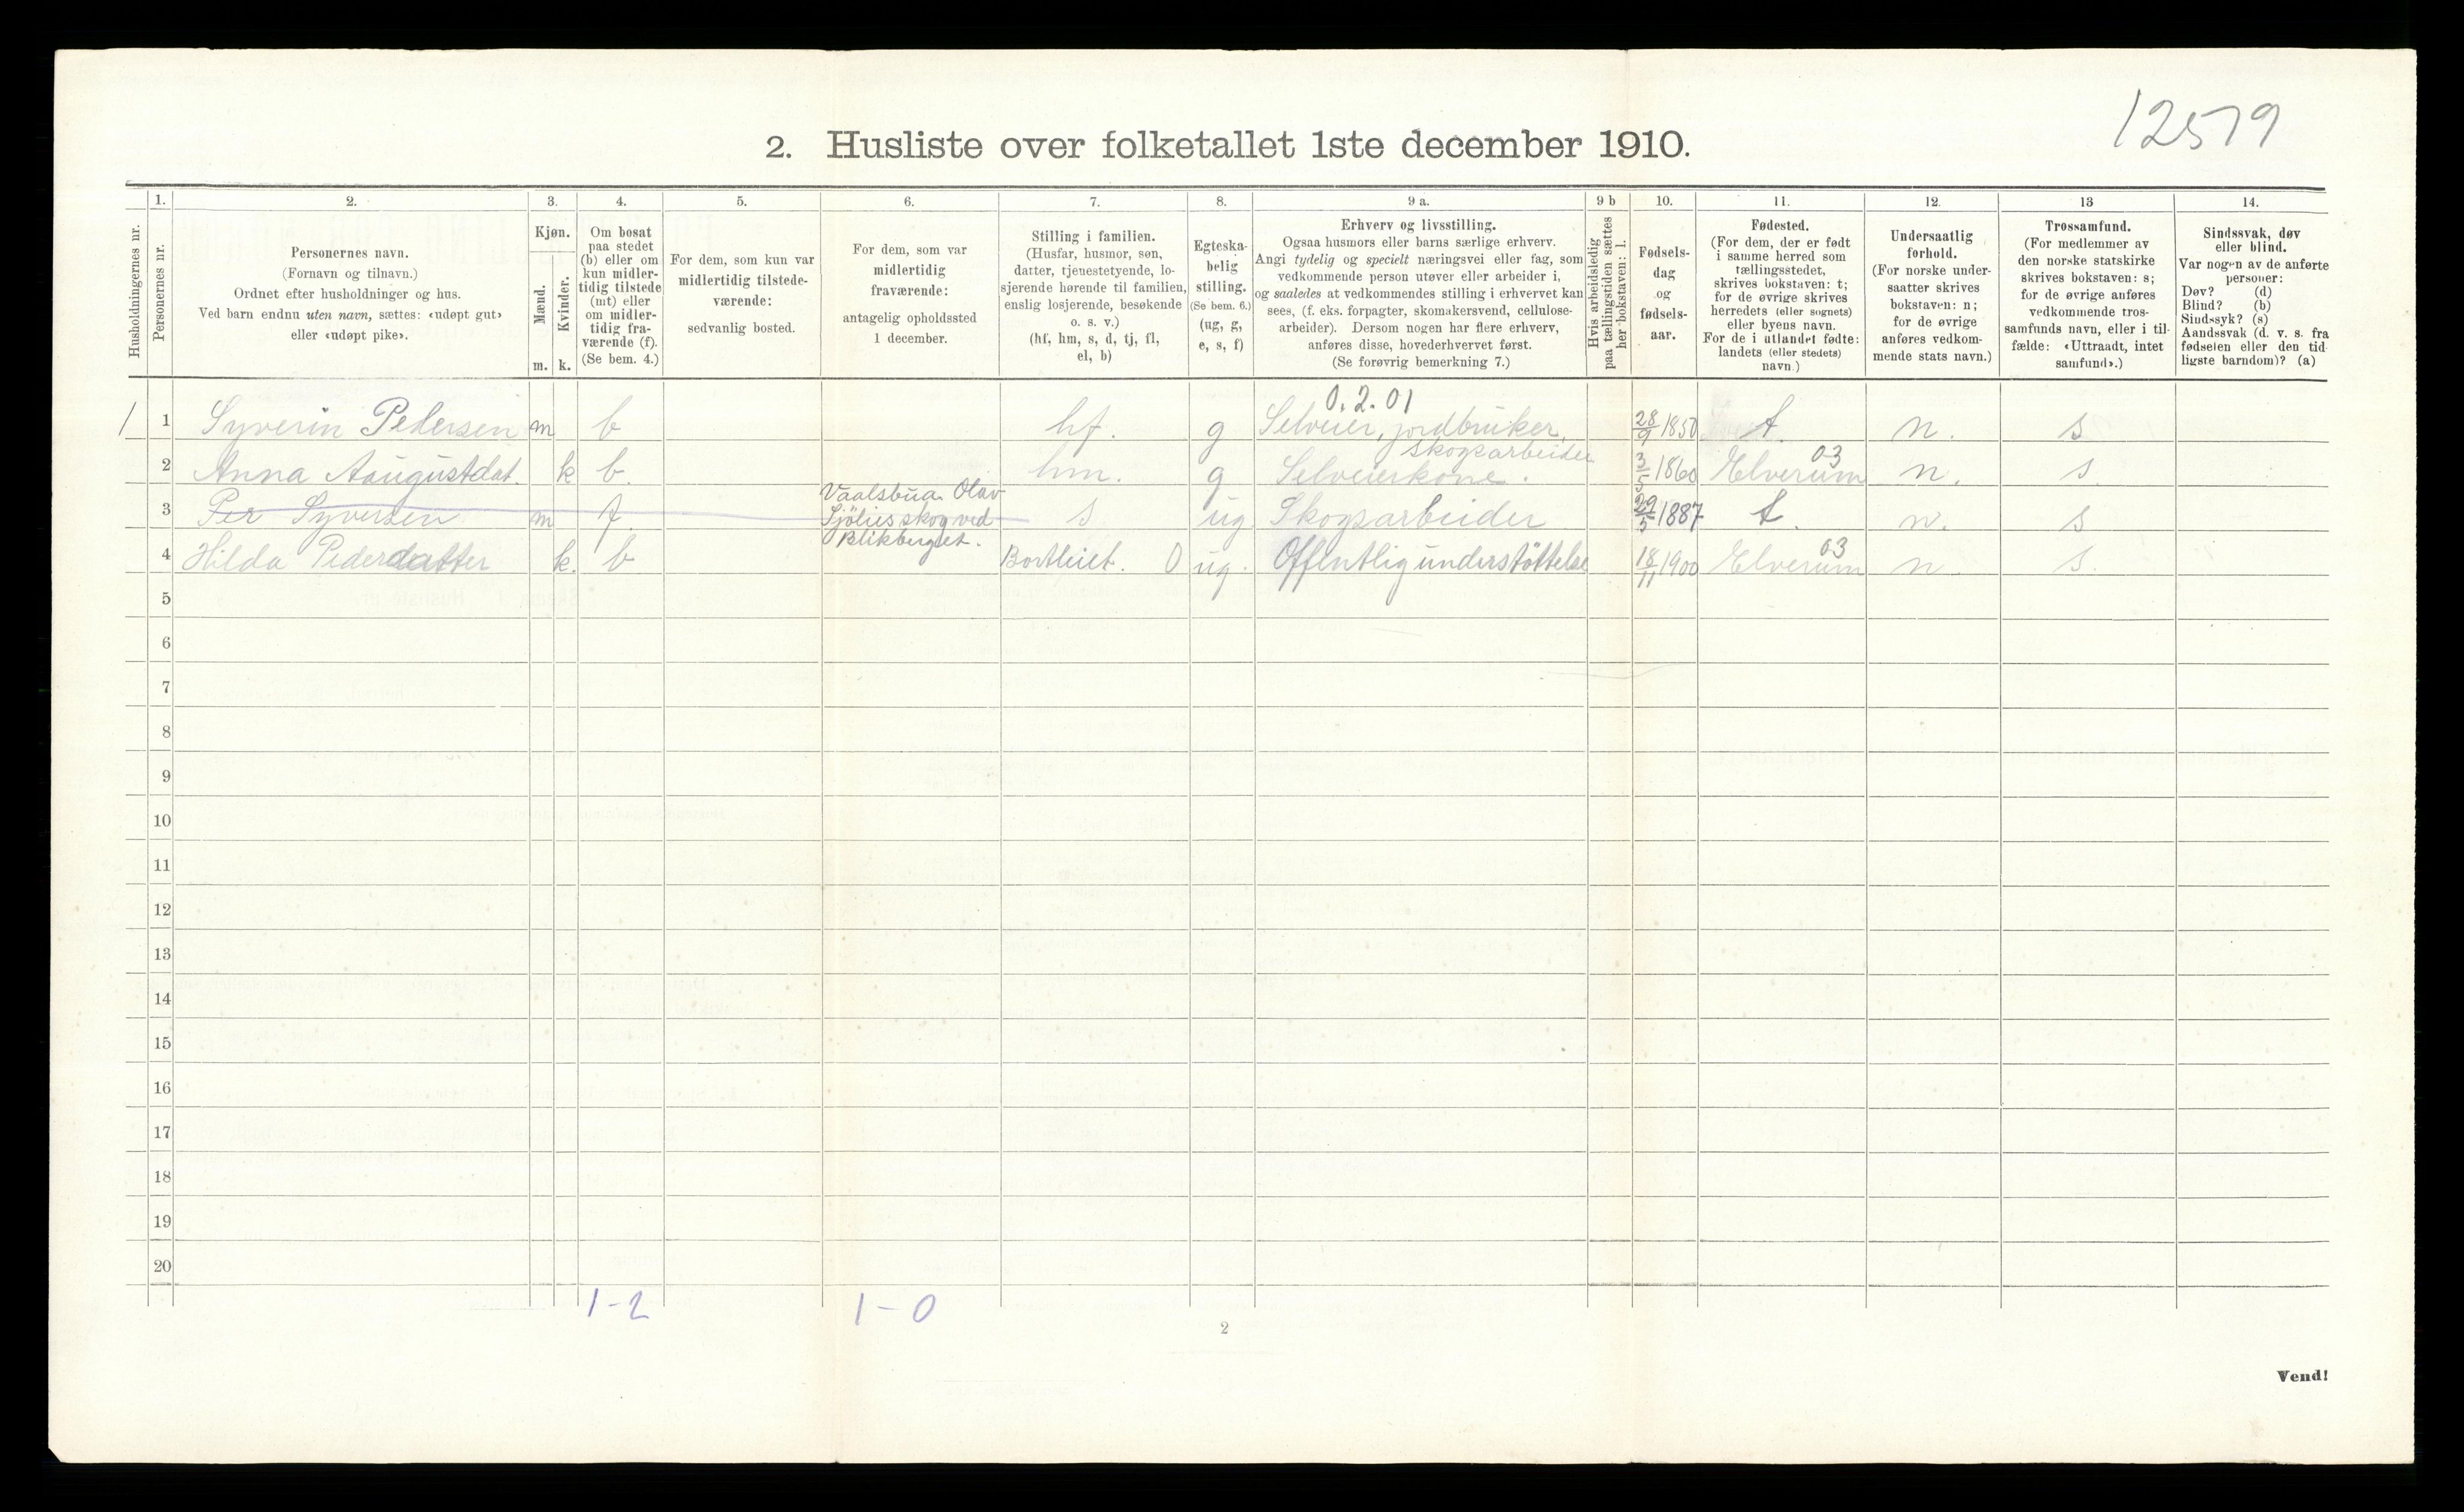 12579
2. Husliste over folketallet 1ste december 1910.
Husholdningernes nr.
1.
Personernes nr.
2.
Personernes navn.
(Fornavn og tilnavn.)
Ordnet efter husholdninger og hus.
Ved barn endnu uten navn, sættes: «udøpt gut»
eller «udøpt pike».
3.
Kjøn.
Mænd.
Kvinder.
m. k.
4.
Om bosat
paa stedet
(b) eller om
kun midler-
tidig tilstede
(mt) eller
om midler-
tidig fra-
værende (f).
(Se bem. 4.)
5.
For dem, som kun var
midlertidig tilstede-
værende:
sedvanlig bosted.
6.
For dem, som var
midlertidig
fraværende:
antagelig opholdssted
1 december.
7.
Stilling i familien.
(Husfar, husmor, søn,
datter, tjenestetyende, lo-
sjerende hørende til familien,
enslig losjerende, besøkende
o. s. v.)
(hf, hm, s, d, tj, fl,
el, b)
8.
Egteska-
belig
stilling.
(Se bem. 6.)
(ug, g,
e, s, f)
9 a.
Erhverv og livsstilling.
Ogsaa husmors eller barns særlige erhverv.
Angi tydelig og specielt næringsvei eller fag, som
vedkommende person utøver eller arbeider i,
og saaledes at vedkommendes stilling i erhvervet kan
sees, (f. eks. forpagter, skomakersvend, cellulose-
arbeider). Dersom nogen har flere erhverv,
anføres disse, hovederhvervet først.
(Se forøvrig bemerkning 7.)
9 b
Hvis arbeidsledig
paa tællingstiden sættes
her bokstaven: l.
10.
Fødsels-
dag
og
fødsels-
aar.
11.
Fødested.
(For dem, der er født
i samme herred som
tællingsstedet,
skrives bokstaven: t;
for de øvrige skrives
herredets (eller sognets)
eller byens navn.
For de i utlandet fødte:
landets (eller stedets)
navn.)
12.
Undersaatlig
forhold.
(For norske under-
saatter skrives
bokstaven: n;
for de øvrige
anføres vedkom-
mende stats navn.)
13
Trossamfund.
(For medlemmer av
den norske statskirke
skrives bokstaven: s;
for de øvrige anføres
vedkommende tros-
samfunds navn, eller i til-
fælde: «Uttraadt, intet
samfund».)
14.
Sindssvak, døv
eller blind.
Var nogen av de anførte
personer:
Døv? (d)
Blind? (b)
Sindssyk? (s)
Aandssvak (d. v. s. fra
fødselen eller den tid-
ligste barndom)? (a)
0.2.01
1 1 Syverin Pedersen m b hf. g Selveier, jordbruker, 28/9 1850 t. n. s
skogsarbeider
2 Anna Aougustdat. k b. hm. g Selveierkone. 3/5 1860 Elverum 03 n. s.
Vaalsbua Olav
3 Per Syversen m f. Sjölies skog ved s ug Skogsarbeider 29/5 1887 t. n. s
Blikberget.
4 Hilda Pederdatter k. b Bortleiet. 0 ug. Offentlig understöttelse 18/11 1900 Elverum 03 n. s.
5
6
7
8
9
10
11
12
13
14
15
16
17
18
19
20
1-2 1-0
2
Vend!